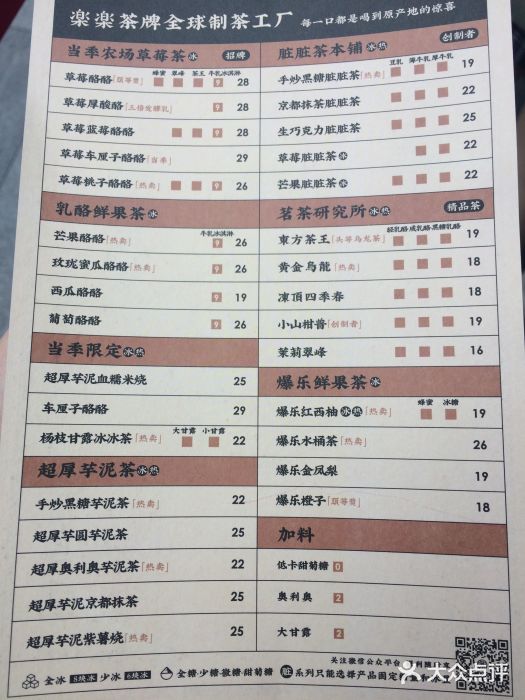 楽楽茶牌全球制茶工厂 每一口都是喝到原产地的惊喜
当季农场草莓茶 冰 招牌
蜂蜜 翠峰 茶王 牛乳冰淇淋
草莓酪酪「頭等獎」 9 28
草莓厚酸酪「三倍发酵乳」 9 28
草莓蓝莓酪酪 9 28
草莓车厘子酪酪「当季」 29
草莓桃子酪酪「热卖」 9 26
乳酪鲜果茶 冰
牛乳冰淇淋
芒果酪酪「热卖」 9 26
玫珑蜜瓜酪酪「热卖」 9 26
西瓜酪酪 9 19
葡萄酪酪 9 26
当季限定 冰 热
超厚芋泥血糯米烧 25
车厘子酪酪 29
大甘露 小甘露
杨枝甘露冰冰茶「热卖」 22
超厚芋泥茶 冰 热
手炒黑糖芋泥茶「热卖」 22
超厚芋圆芋泥茶 25
超厚奥利奥芋泥茶「热卖」 22
超厚芋泥京都抹茶 25
超厚芋泥紫薯烧「热卖」 25
脏脏茶本铺 冰 热 创制者
豆乳 薄牛乳 厚牛乳
手炒黑糖脏脏茶「热卖」 19
京都抹茶脏脏茶 22
生巧克力脏脏茶 25
草莓脏脏茶 冰 22
芒果脏脏茶 冰 22
茗茶研究所 冰 热 精品茶
轻乳酪 咸乳酪 黑糖乳酪
東方茶王「头等乌龙茶」 19
黄金烏龍「热卖」 18
凍頂四季春 18
小山柑普「创制者」 19
茉莉翠峰 16
爆乐鲜果茶 冰
蜂蜜 冰糖
爆乐红西柚 冰 热「热卖」 19
爆乐水桶茶「热卖」 26
爆乐金凤梨 19
爆乐橙子「頭等獎」 18
加料
低卡甜菊糖 0
奥利奥 2
大甘露 2
关注微信公众平台
全冰 8块冰 少冰 6块冰 全糖·少糖·微糖·甜菊糖 脏 系列只能选择产品固定
大众点评